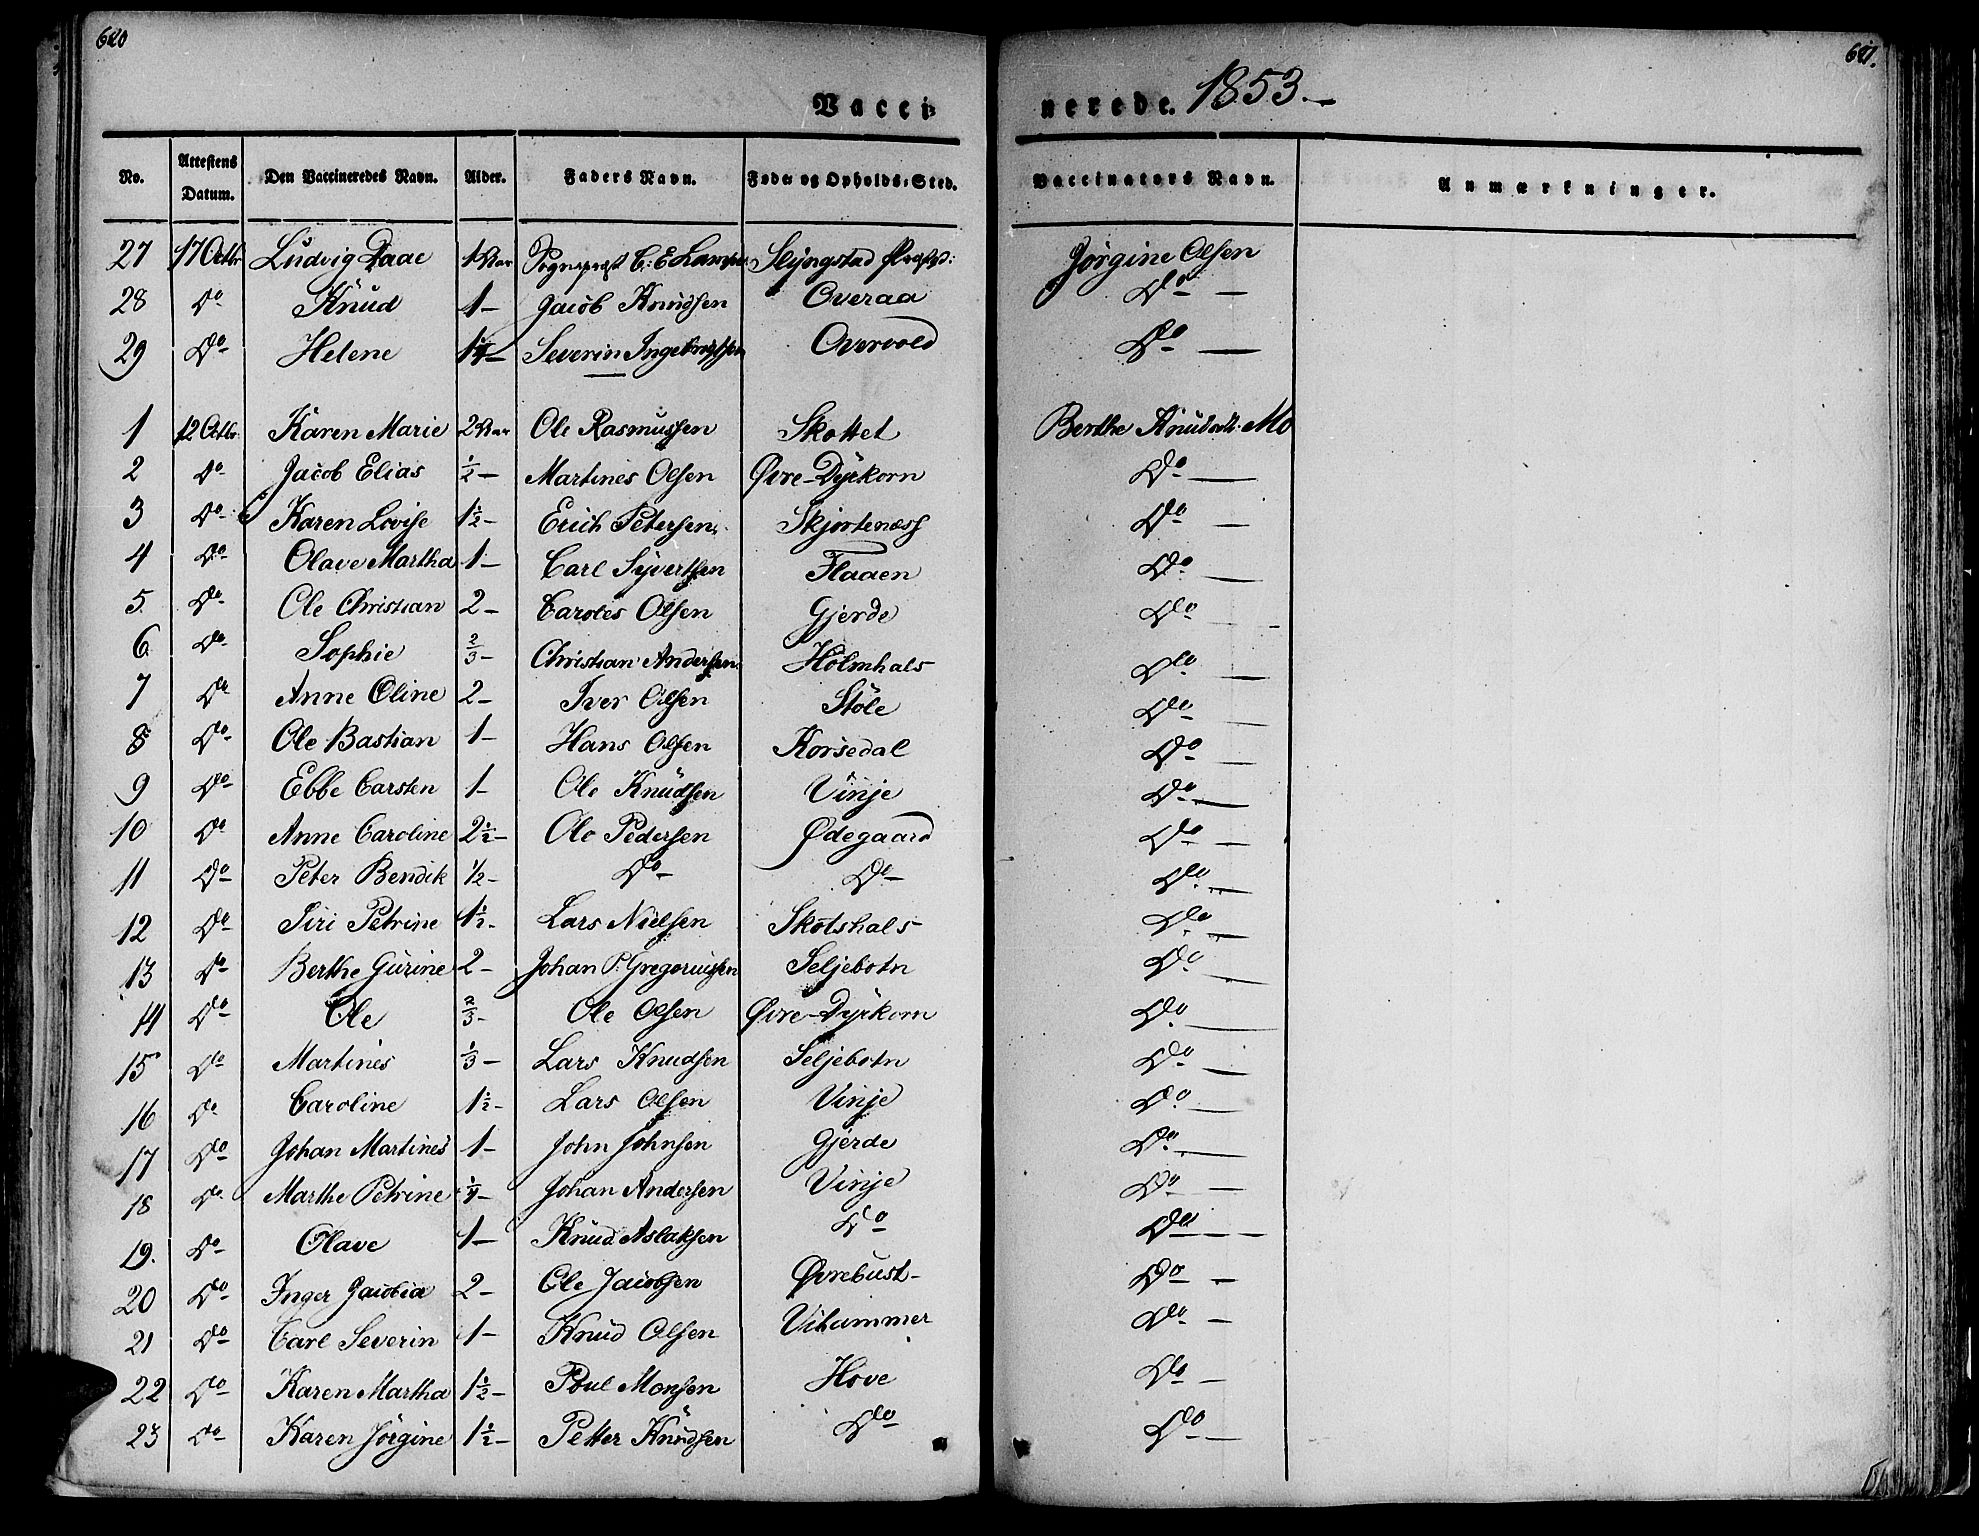 620
621.
Vacci-
nerede. 1853.-
No. Attestens Datum. Den Vaccineredes Navn. Alder. Faders Navn. Føde- og Opholds-Sted. Vaccinators Navn. Anmærkninger.
27 17 Octbr Ludvig Daae 1 Aar Sogneprest C: E. Slyngstad Jørgine Olsen
28 Do Knud 1- Jacob Knudsen Overaa Do -
29 Do Helene Severin Ingebrigtsen Overvold Do -
1 12 Octbr. Karen Marie 2 Aar Ole Rasmussen Skottet Berthe Knudsdt. Mo
2 Do Jacob Elias 1/2- Martines Olsen Øvre-Dyrkorn Do -
3 Do Karen Lovise 1 1/2- Erich Petersen Skjortenæss Do -
4 Do Olave Martha 1- Carl Syvertsen Flaaen Do -
5. Do Ole Christian 2- Caroles Olsen Gjerde Do -
6. Do Sophie 2/3- Christian Andersen Holmhals Do -
7 Do Anne Oline 2- Iver Olsen Støle Do -
8 Do Ole Bastian 1- Hans Olsen Korsedal Do -
9 Do Ebbe Carsten 1- Ole Knudsen Vinje Do -
10 Do Anne Caroline 2 1/2- Ole Pedersen Ødegaard Do -
11 Do Peter Bendik 1/2- Do Do Do -
12 Do Siri Petrine 1 1/2- Lars Nielsen Skotshals Do -
13 Do Berthe Gurine 2- Johan P. Gregoriussen Seljebotn Do -
14 Do Ole 2/3- Ole Olsen Øvre-Dyrkorn Do -
15 Do Martines 1/3- Lars Knudsen Seljebotn Do -
16 Do Caroline 1 1/2- Lars Olsen Vinje Do -
17 Do Johan Martines 1- John Johnsen Gjerde Do -
18 Do Marthe Petrine Johan Andersen Vinje Do -
19. Do Olave 1- Knud Aslaksen Do Do -
20 Do Inger Jacobia 2- Ole Jacobsen Øvrebust- Do -
21 Do Carl Severin 1- Knud Olsen Vihammer Do -
22 Do Karen Martha 1 1/2- Poul Monsen Hove Do -
23 Do Karen Jørgine 1 1/2- Petter Knudsen Do Do -